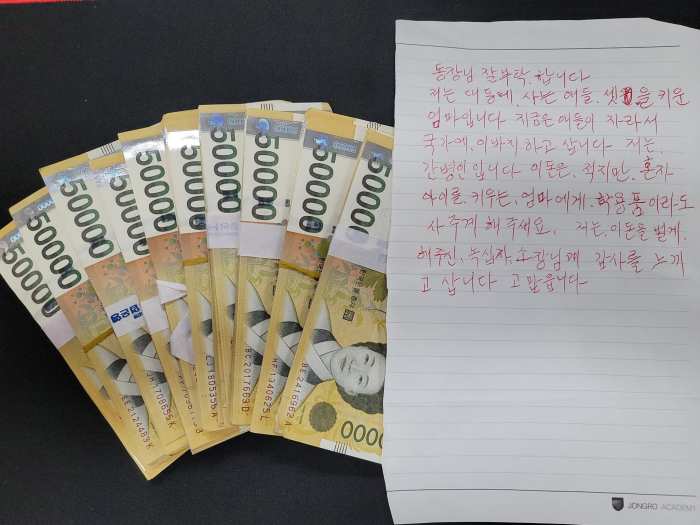 50000
50000
50000
50000
50000
50000
50000
50000
50000
50000
0000
EE2124483K
1708655K
1805356A
EC2017683D
HF1340625L
BE2416962A
동장님 잘부탁 합니다
저는 대동에, 사는 애들, 셋을 키운
엄마입니다 지금은 애들이 자라서
국가에, 이바지하고 삽니다 저는,
간병인입니다 이돈은, 적지만, 혼자
아이를, 키우는, 엄마에게, 학용품이라도
사주게 해주세요, 저는, 이돈을 벌게,
해주신, 녹십자, 소장님께 감사를 느끼
고 삽니다 고맙습니다
JONGRO ACADEMY